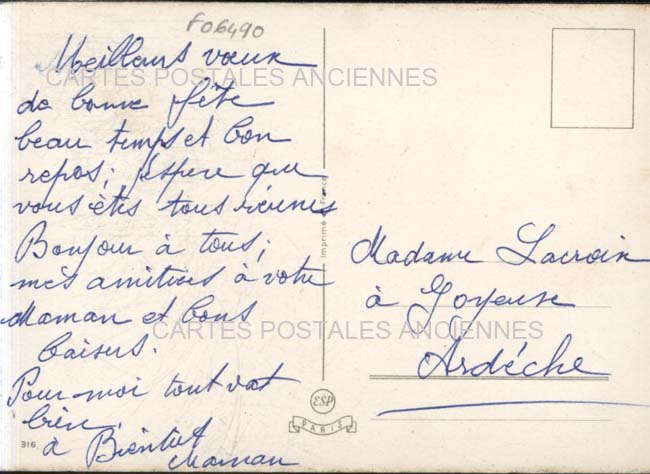 F06490
Meilleurs vœux
CARTES POSTALES ANCIENNES
de bonne fête
beau temps et bon
repos; j'espère que
vous êtes tous réunis
Bonjour à tous;
mes amitiés à votre
Maman et bons
baisers.
Pour moi tout vat
bien.
à Bientôt
Maman
316
Imprimé en France
Madame Lacroix
à Joyeuse
CARTES POSTALES ANCIENNES
Ardèche
ESP
PARIS